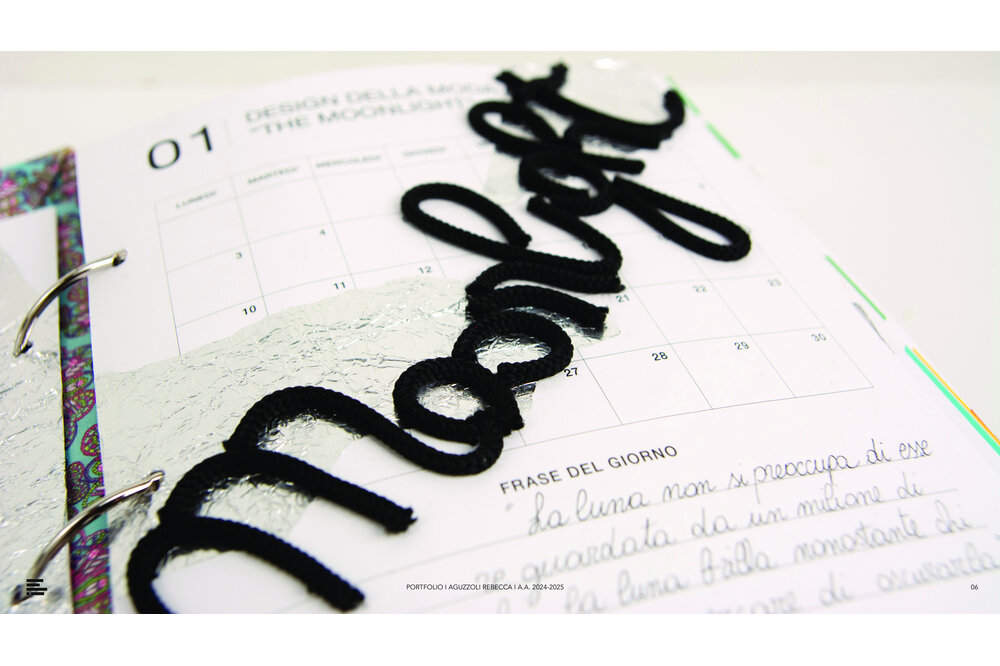 01
DESIGN DELLA MODA
"THE MOONLIGHT
Moonlight
LUNEDI' MARTEDI' MERCOLEDI' GIOVEDI'
3 4
10 11 12
21 22 23
27 28 29 30
FRASE DEL GIORNO
"La luna non si preoccupa di esse
guardata da un milione di
la luna brilla nonostante chi
di oscurarla
PORTFOLIO I AGUZZOLI REBECCA I A.A. 2024-2025
06